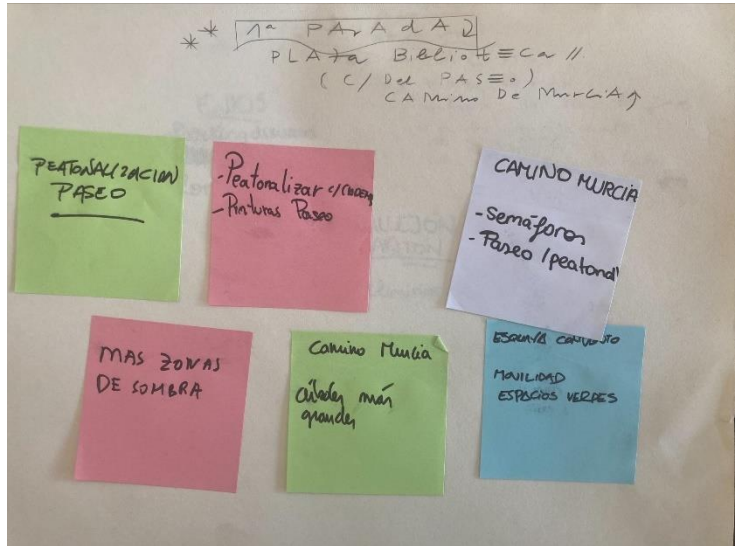 ** 1ª PArAdA
PLAza BiblioteCa //
( C/ Del PASEo )
CAMino De MurCiA
PEATONALIZACION
PASEO
- Peatonalizar c/
- Pinturas Paseo
CAMINO MURCIA
- Semáforos
- Paseo /peatonal
MAS ZONAS
DE SOMBRA
Camino Murcia
más
grandes
ESQUINA CONVENTO
MOVILIDAD
ESPACIOS VERDES